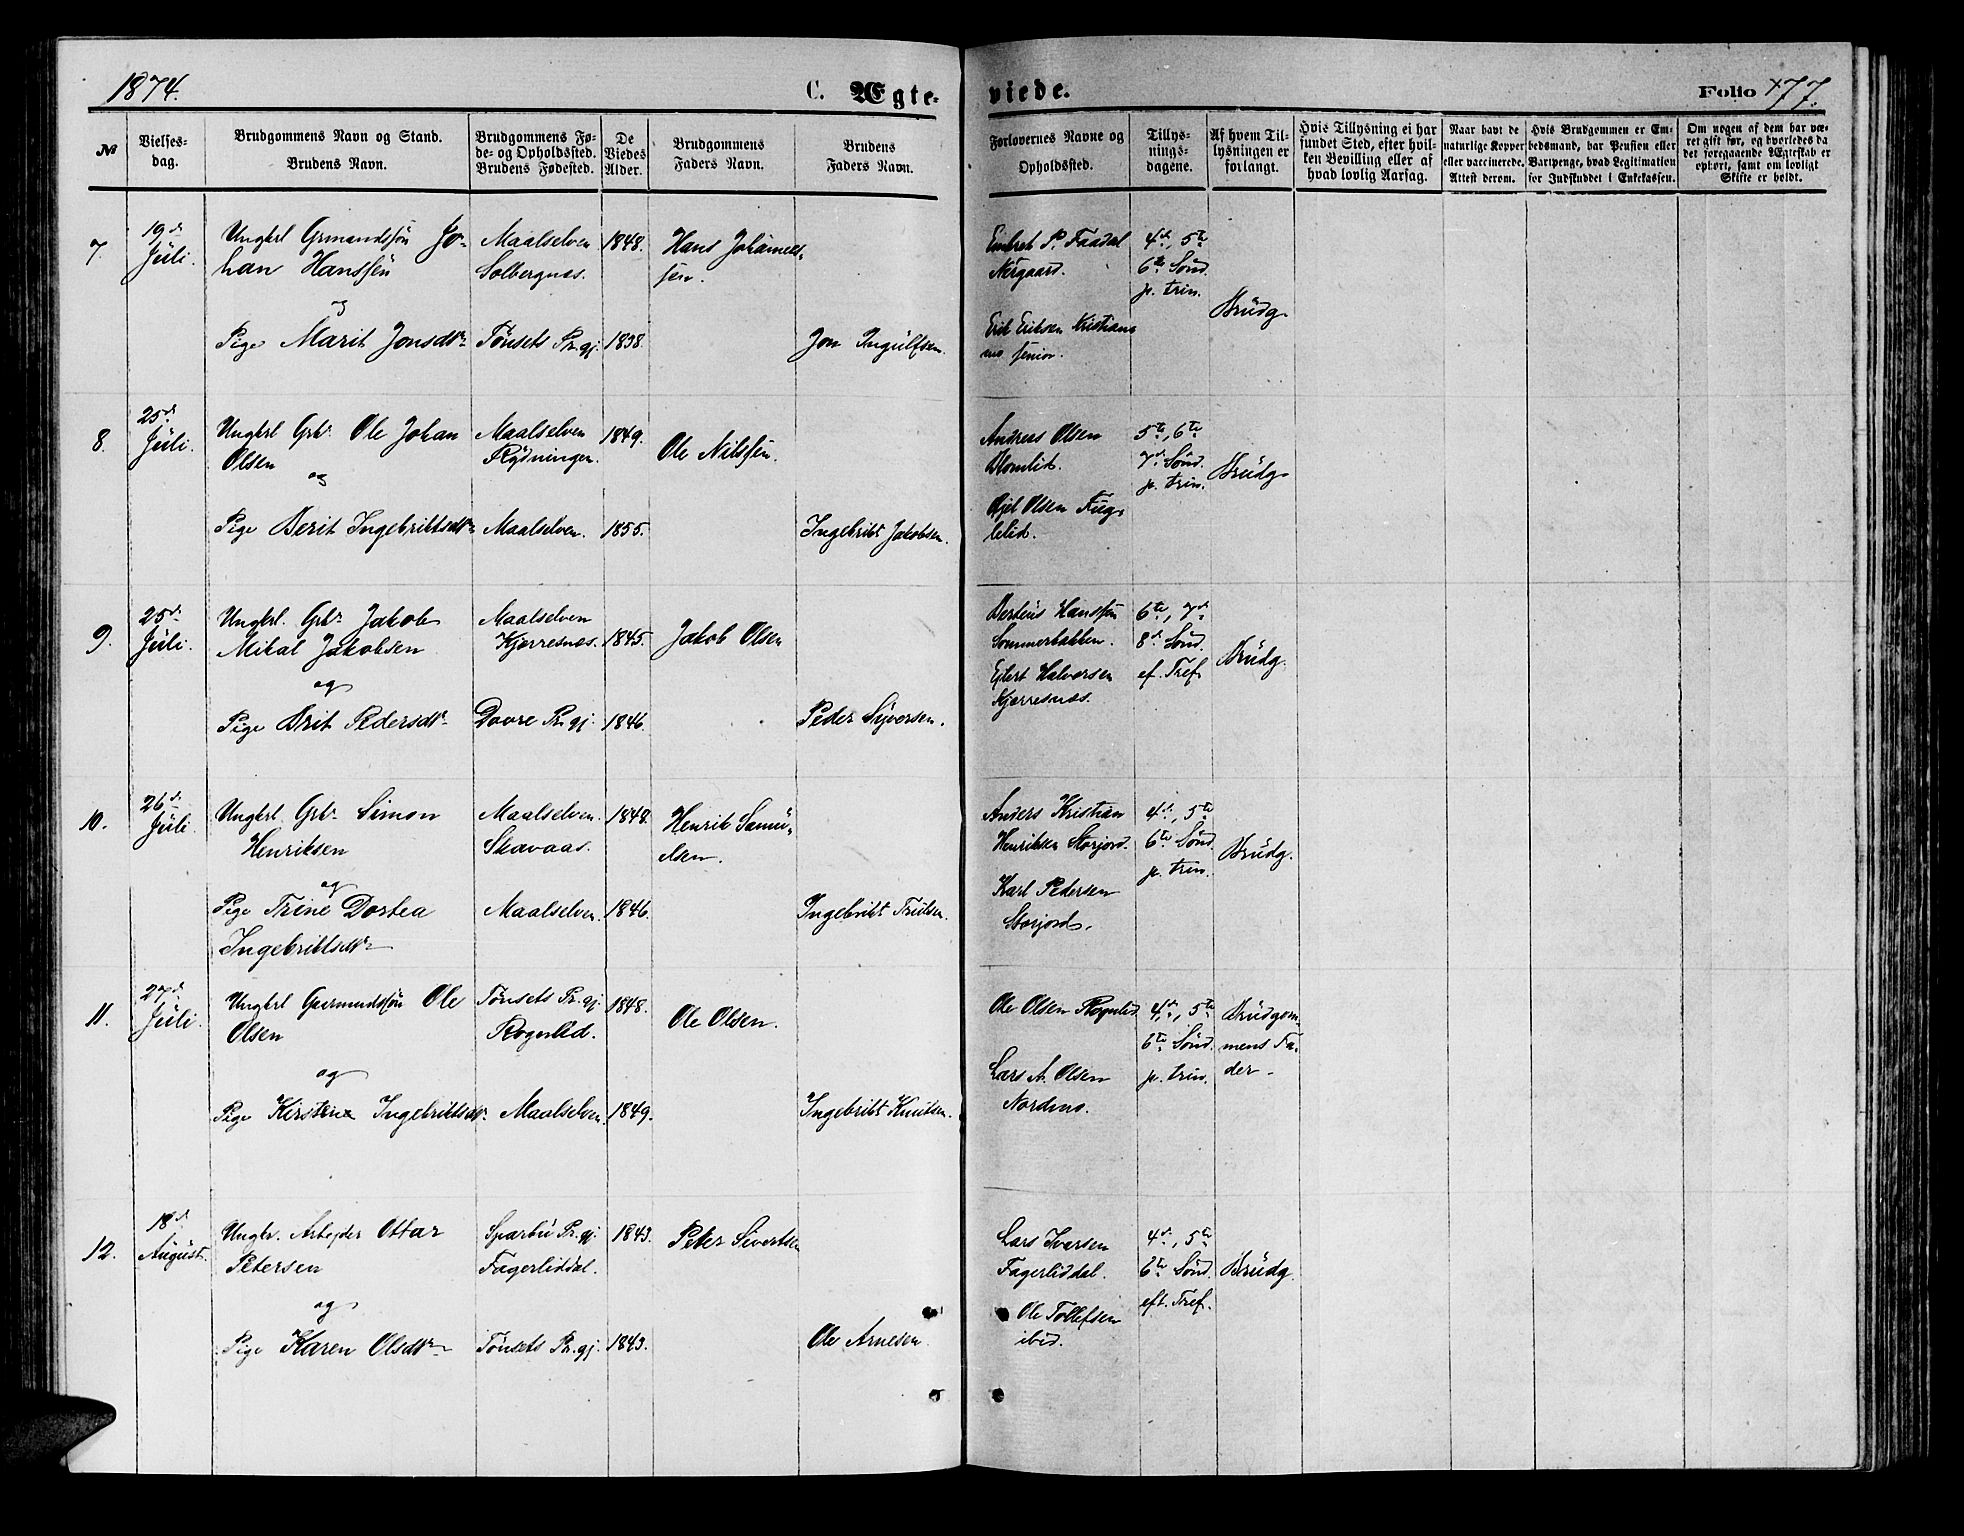 1874.
C. Ægte-
viede.
Folio 77.
№
Vielses-
dag.
Brudgommens Navn og Stand.
Brudens Navn.
Brudgommens Fø-
de- og Opholdssted.
Brudens Fødested.
De
Viedes
Alder.
Brudgommens
Faders Navn.
Brudens
Faders Navn.
Forlovernes Navne og
Opholdssted.
Tillys-
nings-
dagene.
Af hvem Til-
lysningen er
forlangt.
Hvis Tillysning ei har
fundet Sted, efter hvil-
ken Bevilling eller af
hvad lovlig Aarsag.
Naar havt de
naturlige Kopper
eller vaccinerede.
Attest derom.
Hvis Brudgommen er Em-
bedsmand, har Pension eller
Vartpenge, hvad Legitimation
for Indskuddet i Enkekassen.
Om nogen af dem har væ-
ret gift før, og hvorledes da
det foregaaende Ægteskab er
ophørt, samt om lovligt
Skifte er holdt.
7.
19de
Juli.
Ungkrl Grmandssøn Jo-
han Hanssen
og
Pige Marit Jonsdtr
Maalselven
Solbergnæs.
Tønsets Pr.gj.
1848.
1838.
Hans Johannes-
sen.
Jon Ingulfsen.
Embret P. Faadal
Nergaard.
Erik Eriksen Kristians
mo senior.
4de, 5te
6te Sønd.
p. trin.
Brudg
8.
25de
Juli.
Ungkrl Grbr Ole Johan
Olsen
og
Pige Berit Ingebriktsdtr
Maalselven
Rydningen.
Maalselven.
1849.
1855.
Ole Nilssen.
Ingebrikt Jakobsen.
Andreas Olsen
Blomlid.
Kjel Olsen Fug-
lelid.
5te, 6te
7de Sønd.
p. trin.
Brudg
9.
25de
Juli.
Ungkrl. Grbr Jakob
Mikal Jakobsen
og
Pige Brit Pedersdtr
Maalselven
Kjerresnæs.
Dovre Pr.gj.
1845.
1846.
Jakob Olsen
Peder Syversen.
Berteus Hanssen
Sommerbakken.
Eilert Halvorsen
Kjerresnæs.
6te, 7de
8de Sønd.
ef. Tref.
Brudg.
10.
26de
Juli.
Ungkrl. Grbr Simon
Henriksen
og
Pige Trine Dortea
Ingebriktsdtr
Maalselven.
Skavaas.
Maalselven.
1848.
1846.
Henrik Samu-
elsen.
Ingebrikt Trulsen.
Anders Kristian
Henriksen Storjord.
Karl Pedersen
Storjord.
4de, 5te
6te Sønd.
p. trin.
Brudg.
11.
27de
Juli.
Ungkrl Gaarmandssøn Ole
Olsen
og
Pige Kirstine Ingebriktsdtr
Tønsets Pr.gj.
Rognlid.
Maalselven.
1848.
1849.
Ole Olsen.
Ingebrikt Knutsen.
Ole Olsen Rognlid
Lars A. Olsen
Nordmo.
4de, 5te
6te Sønd.
p. trin.
Brudgom-
mens Fa-
der.
12.
18de
August.
Ungkr. Arbejder Ottar
Petersen
og
Pige Karen Olsdtr
Sparbu Pr.gj.
Fagerliddal.
Tønsets Pr.gj.
1843.
1843.
Peter Sivertsen
Ole Arnesen
Lars Iversen
Fagerliddal.
Ole Tollefsen
ibid.
4de, 5te
6te Sønd.
eft. Tref.
Brudg.